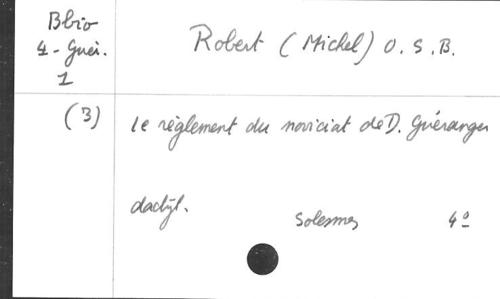 Bbio
4 - Guéi.
1
Robert (Michel) O.S.B.
(3)
Le règlement du noviciat de D. Guéranger
dactyl.
Solesmes
4º